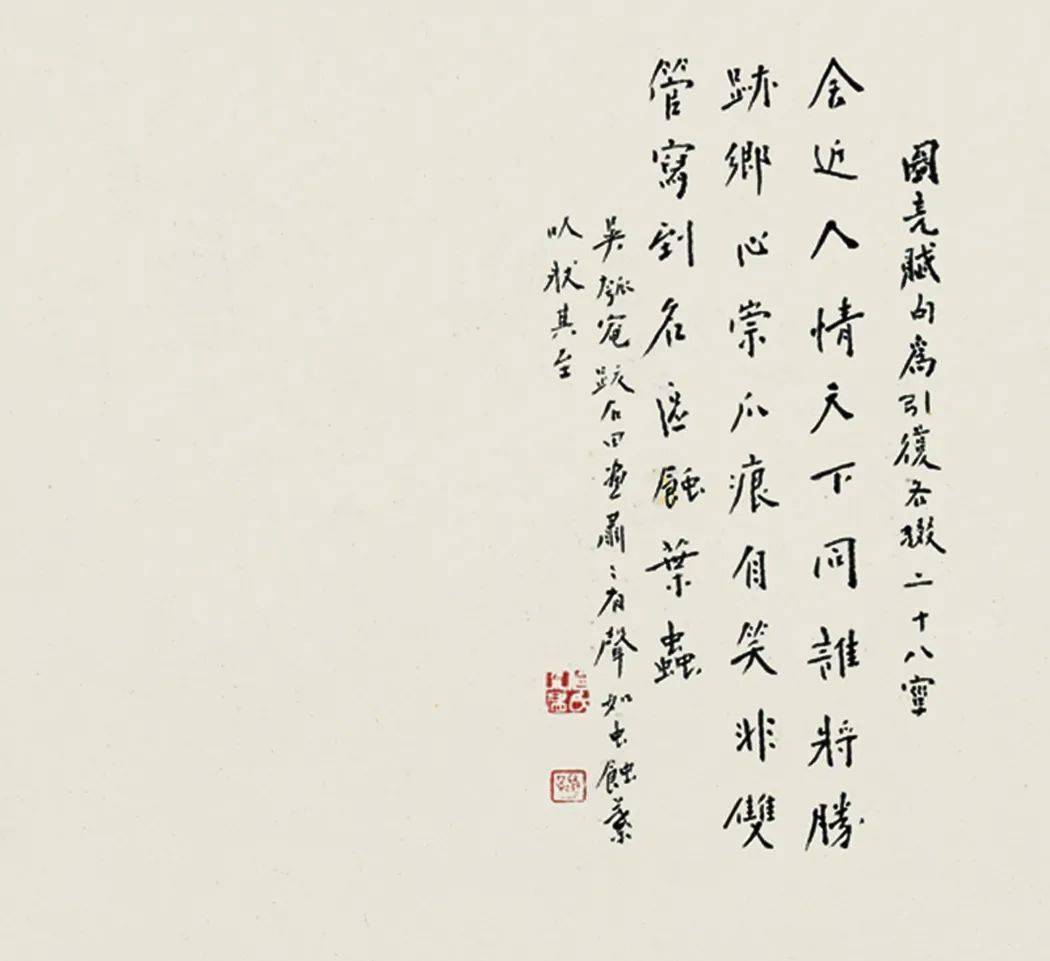 圖竟賦句爲引復各綴二十八
舍近人情天下同誰將勝
跡鄉心崇爪痕自笑非雙
管寫到名區蝕葉蟲
吳匏庵跋石田畫肅〻有聲如虫蝕葉
以狀其至